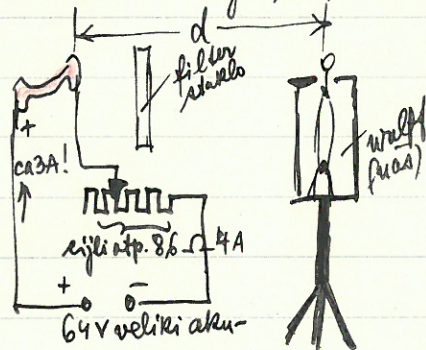 d
filter
staklo
wulff
(naš)
+
ca 3A!
cijeli otp. 86 Ω 4A
+ −
64V veliki aku-